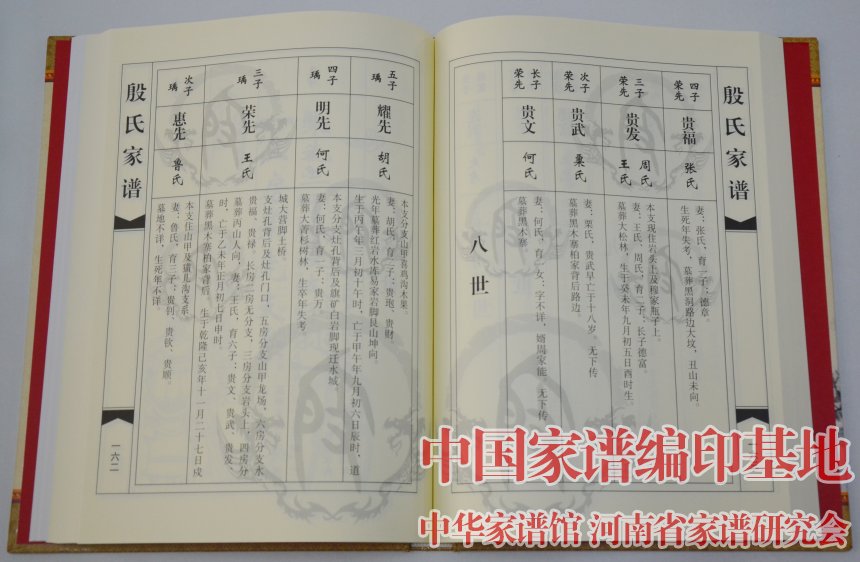 殷氏家谱
四子
荣先
贵福
张氏
妻：张氏，育一子：德章。
生死年失考，墓葬黑洞路边大坟，丑山未向。
三子
荣先
贵发
周氏
王氏
本支现住岩头上及程家瓶子上。
妻：王氏、周氏，育二子：长子德富。
墓葬大松林，生于癸未年九月初五日酉时生。
次子
荣先
贵武
粟氏
妻：栗氏，贵武早亡于十八岁。无下传
墓葬黑木寨柏家背后路边。
长子
荣先
贵文
何氏
妻：何氏，育一女：字不详，婿周家能，无下传
墓葬黑木寨
八世
五子
瑀
耀先
胡氏
本支分支山甲喜鸡沟木果。
妻：胡氏，育二子：贵珀、贵财。
光年墓葬红岩水炼易家岩脚艮山坤向
生于丙午年二月初十午时，亡于甲午年九月初六日辰时，道
四子
瑀
明先
何氏
本支分支灶孔背后及旗矿白岩脚现迁水城。
妻：何氏，育一子：贵万。
墓葬大菁杉树林，生卒年失考。
三子
瑀
荣先
王氏
城大营脚土桥
支灶孔背后及灶孔门口，五房分支山甲龙场，六房分支水
贵福、贵禄，长房二房无分支，三房分支岩头上，四房分
墓葬丙山人向，妻：王氏，育六子：贵文、贵武、贵发、
时，亡于乙未年正月初七日申时。
墓葬黑木寨柏家背后，生于乾隆己亥年十一月二十七日戌
次子
瑀
惠先
鲁氏
本支住山甲及璜儿沟支系。
妻：鲁氏，育三子：贵润、贵钦、贵顺。
墓地不详，生死年不详。
殷氏家谱
一六二
中国家谱编印基地
中华家谱馆 河南省家谱研究会